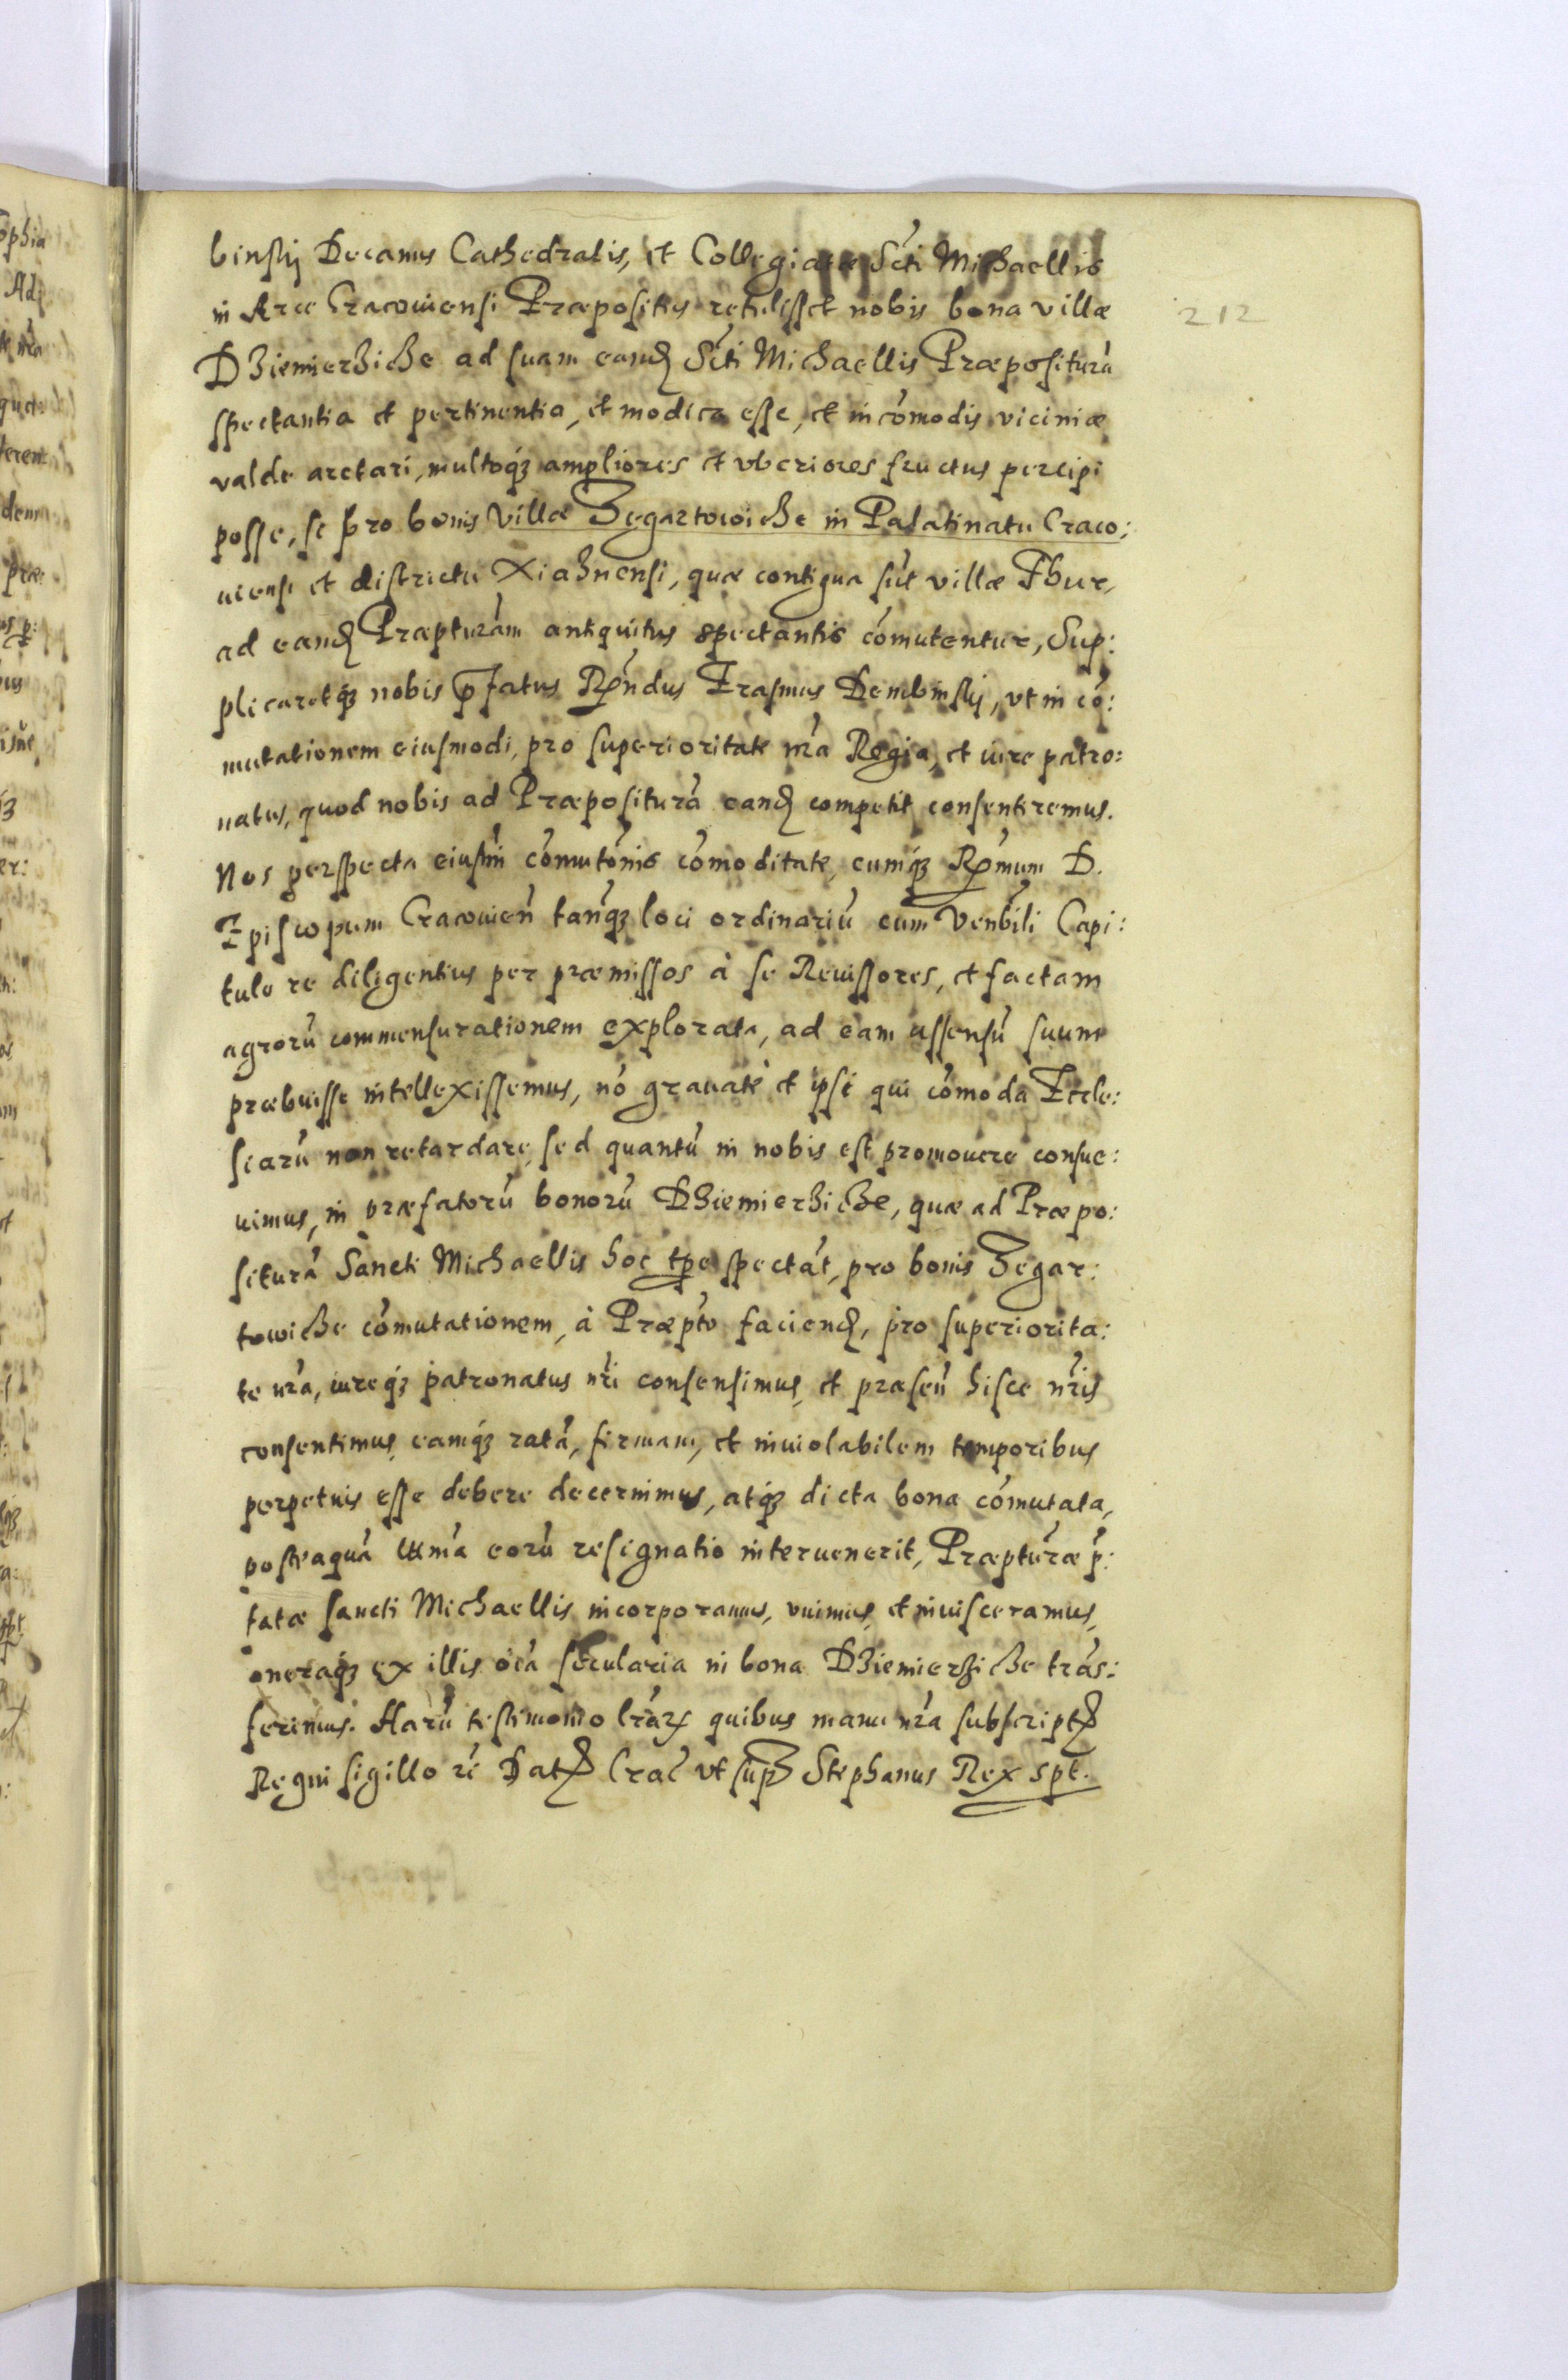 binskj Decanus Cathedralis, et Collegiatae Scti Michaellis
in Arce Cracouiensi Præpositus retulisset nobis bona villæ
212
Dziemierziche ad suam eand Scti Michaellis Præpositurā
spectantia et pertinentia, et modica esse, et incōmodis viciniæ
valde arctari, multoq́3 ampliores et vberiores fructus percipi
posse, si pro bonis villæ Zegartowiche in Palatinatu Craco:
uiensi et districtu Xiaznensi, quæ contigua sūt villæ Thur,
ad eand Præpturām antiquitus spectantis cōmutentur, Sup:
plicaretq́3 nobis p̄fatus Rn̄dus Erasmus Dembinskj, vt in cō:
mutationem eiusmodi, pro superioritate nr̄a Regia, et iure patro:
natus, quod nobis ad Præpositurā eand competit consentiremus.
Nos perspecta eiusm̄ cōmutōnis cōmoditate, cumq́3 Rm̄um D.
Episcopum Cracouien̄ tanq̄3 loci ordinariū cum Venbīli Capi:
tulo re diligentius per præmissos à se Reuissores, et factam
agrorū commensurationem explorata, ad eam assensū suum
præbuisse intellexissemus, nō grauatè et ipsi qui cōmoda Eccle:
siarū non retardare, sed quantū in nobis est promouere consue:
uimus, in præfatorū bonorū Dziemierziche, quæ ad Præpo:
siturā Sancti Michaellis hoc tpe spectāt, pro bonis Zegar:
towiche cōmutationem, à Præpto faciend, pro superiorita:
te nr̄a, iureq́3 patronatus nr̄i consensimus, et præsen̄ hisce nr̄is
consentimus, eamq́3 ratā, firmam, et inuiolabilem temporibus
perpetuis esse debere decernimus, atq́3 dicta bona cōmutata,
posteaquā eorū resignatio interuenerit, Præpturæ p̄:
tatæ sancti Michaellis incorporamus, vnimus, et inuisceramus,
oneraq́3 ex illis oīa secularia in bona Dziemierziche trās:
ferimus. Harū testimonio lrār quibus manu nr̄a subscript
Regni sigillo rē Dat Crac̄ vt supra Stephanus Rex spt.